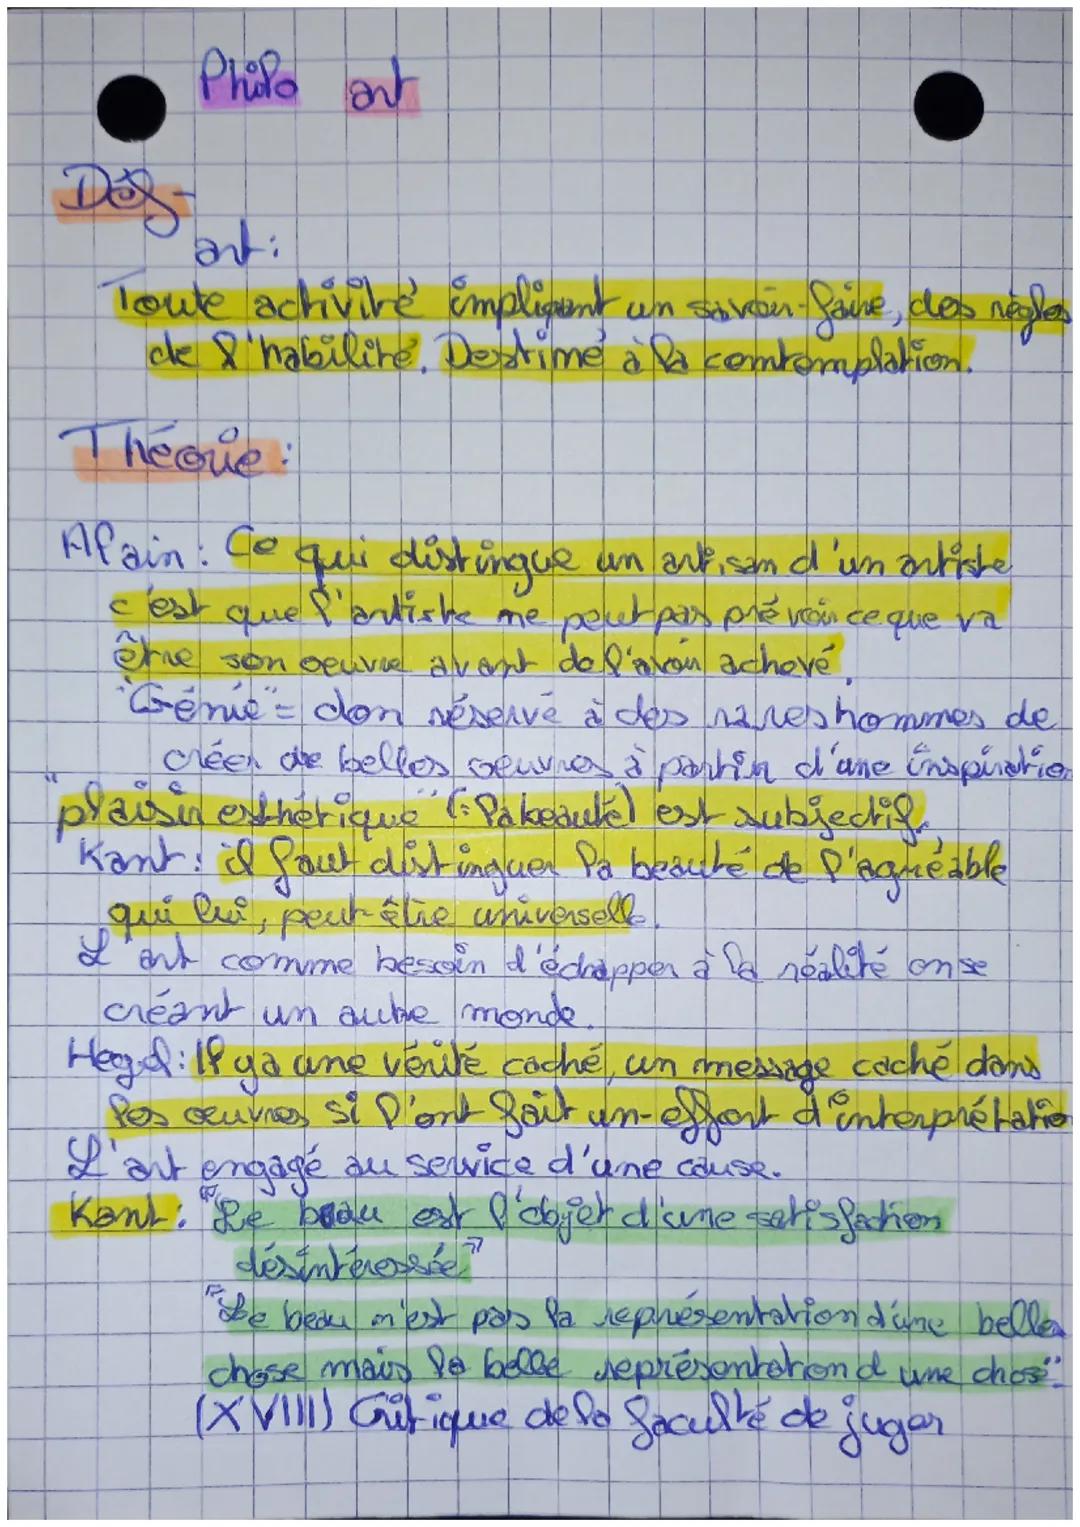 Philo art
Déf-
art:
Toute activité impliqant un savoir-faire, des règles
de l'habilité. Destiné à la comtemplation.
Théorie:
Alain: Ce qui distingue un artisan d'un artiste
c'est que l'artiste ne peut pas prévoir ce que va
être son oeuvre avant de l'avoir achevé.
"Génie" = don réservé à des rares hommes de
créer de belles oeuvres à partir d'une inspiration
"plaisir esthétique" (: la beauté) est subjectif.
Kant: il faut distinguer la beauté de l'agréable
qui lui, peut-être universelle.
L'art comme besoin d'échapper à la réalité en se
créant un autre monde.
Hegel: Il y a une vérité caché, un message caché dans
les œuvres si l'ont fait un effort d'interprétation
L'art engagé au service d'une cause.
Kant: "Le beau est l'objet d'une satisfaction
désintéressée"
"Le beau n'est pas la représentation d'une belle
chose mais la belle représentation d'une chose".
(XVIII) Critique de la faculté de juger